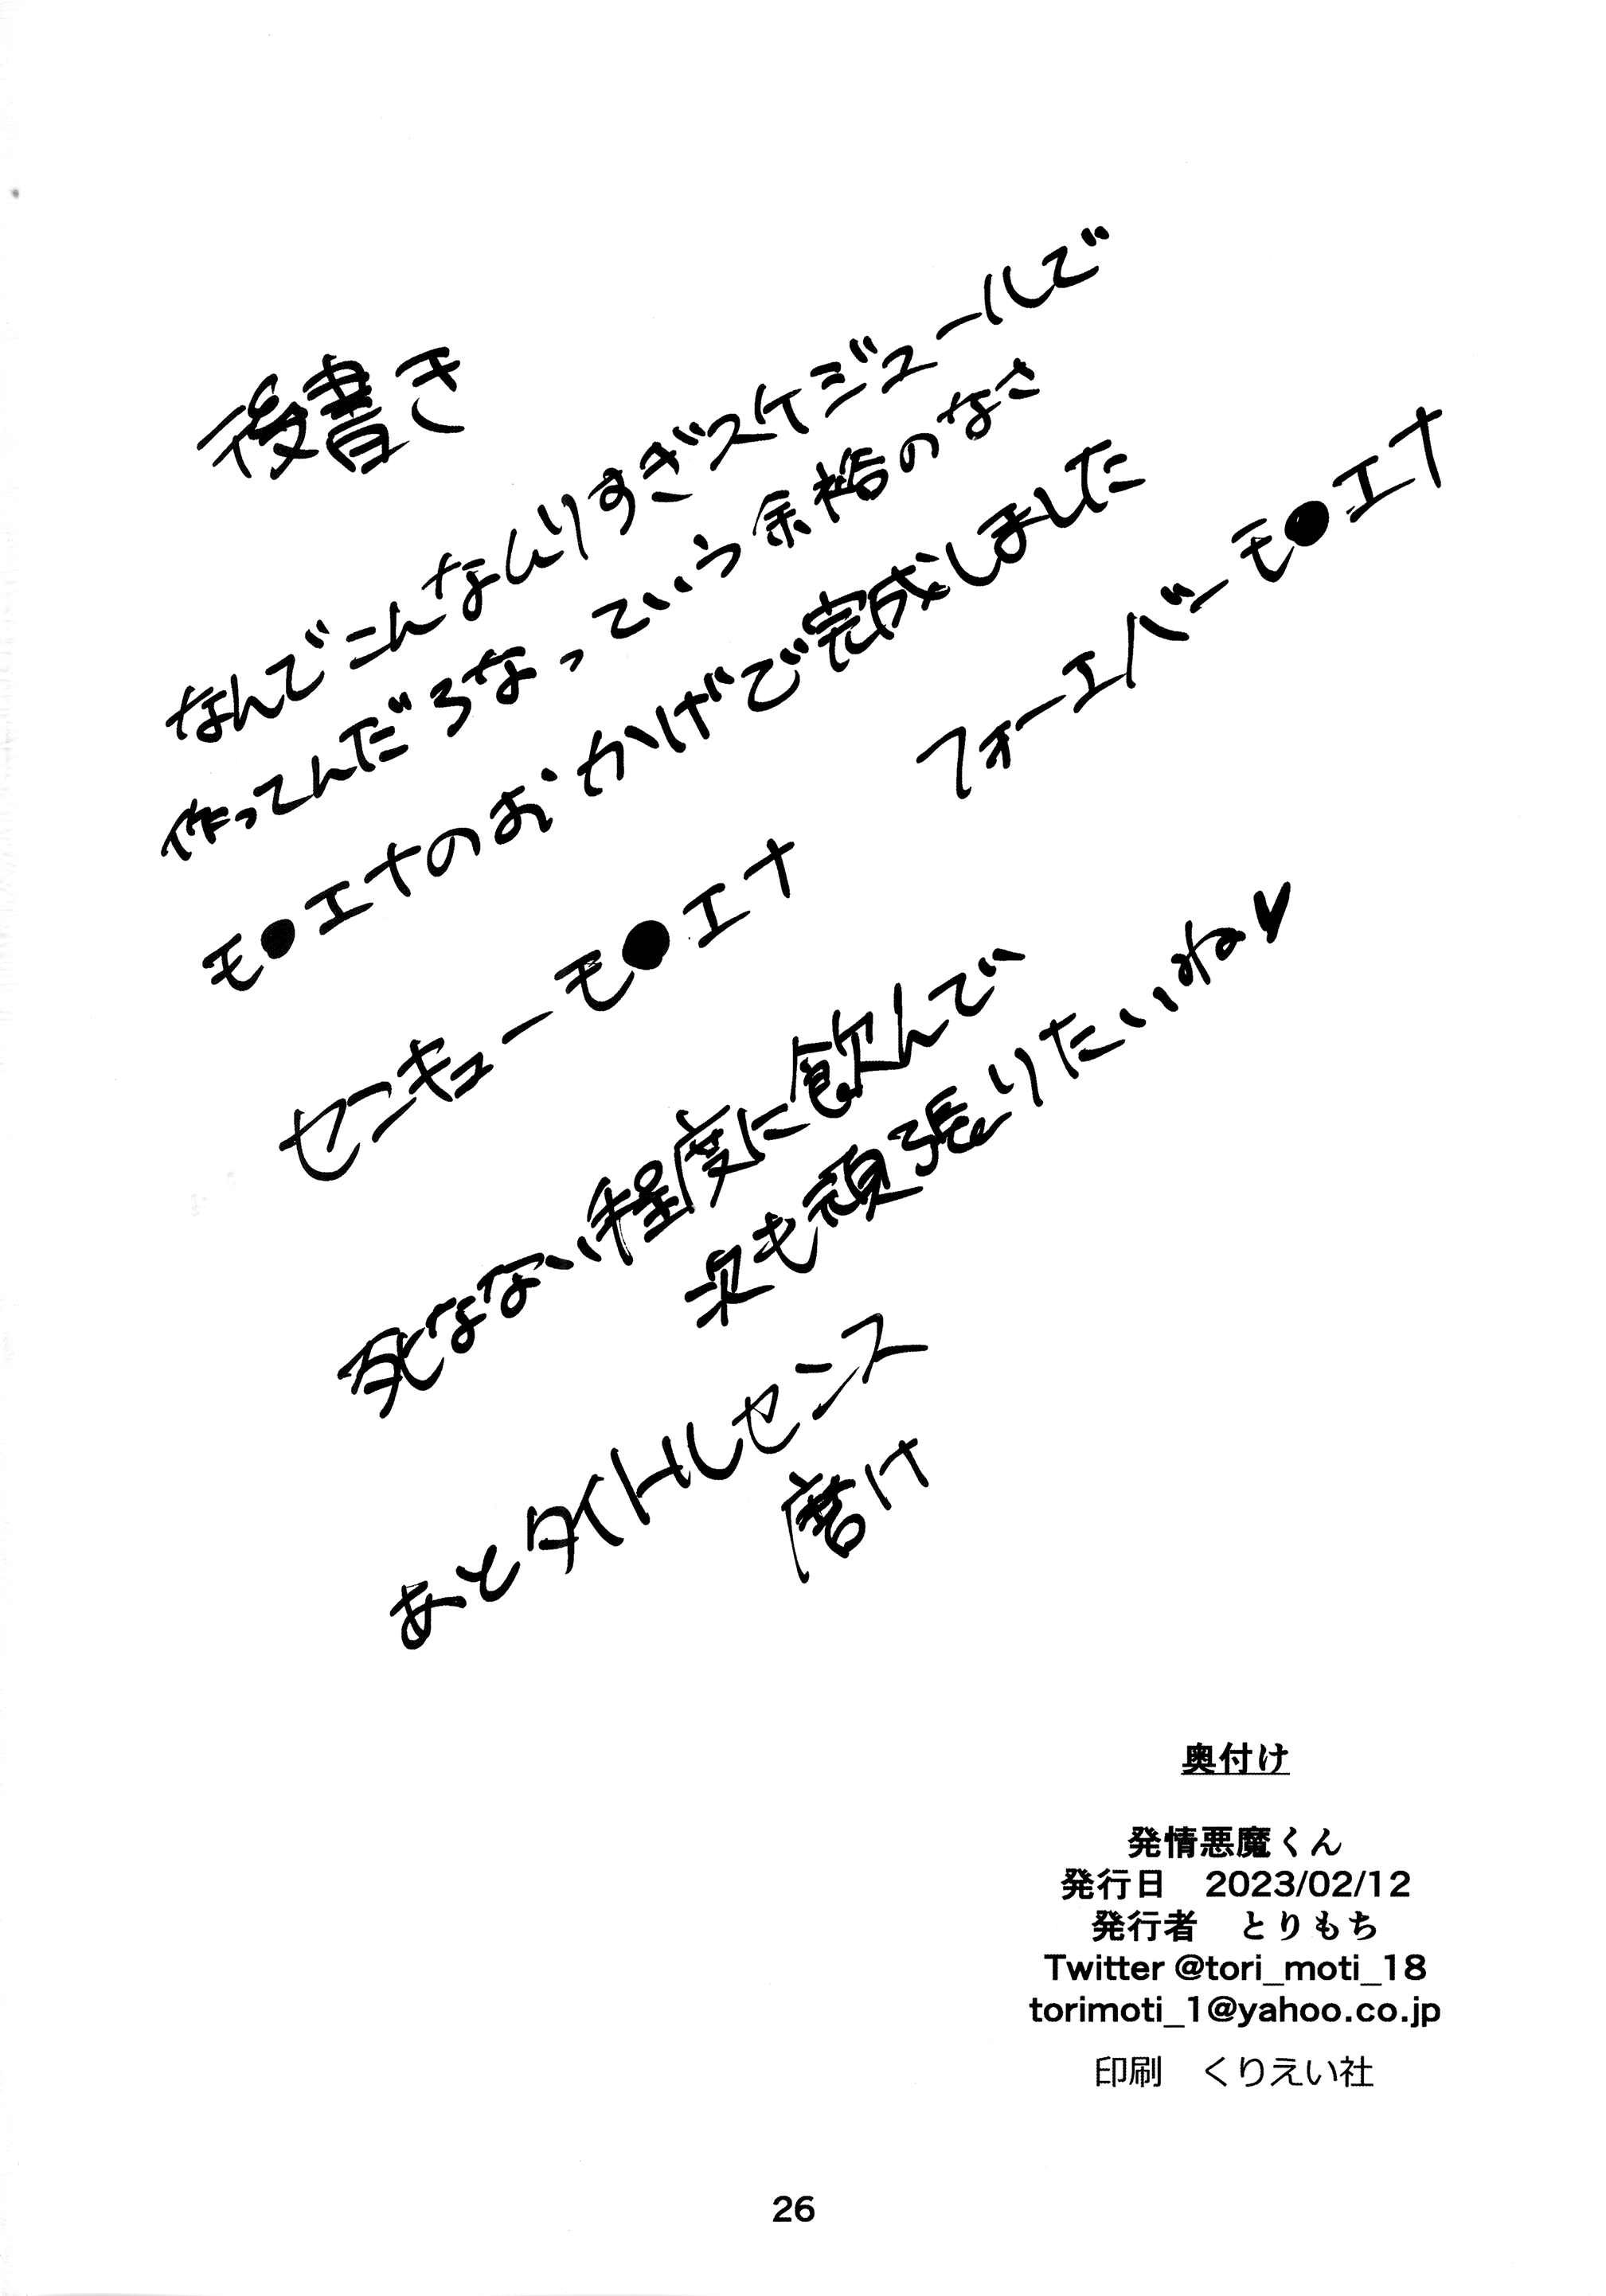 後書き
なんでこんなムリすぎスケジュールで
作ってんだろなっていう余裕のなさ
モ●エナのおかげで完成しました
フォーエバーモ●エナ
センキューモ●エナ
死なない程度に飲んで
次も頑張りたいね♥
あとタイトルセンス
磨け
奥付け
発情悪魔くん
発行日　2023/02/12
発行者　とりもち
Twitter @tori_moti_18
torimoti_1@yahoo.co.jp
印刷　くりえい社
26